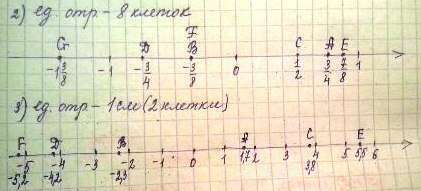 2) ед. отр – 8 клеток
G D F B C A E
-1 3/8 -1 -3/4 -3/8 0 1/2 3/4 7/8 1
3) ед. отр – 1 см (2 клетки)
F D B A C E
-5 -4 -3 -2 -1 0 1 1,7 2 3 4 5 5,5 6
-5,2 -4,2 -2,3 3,8